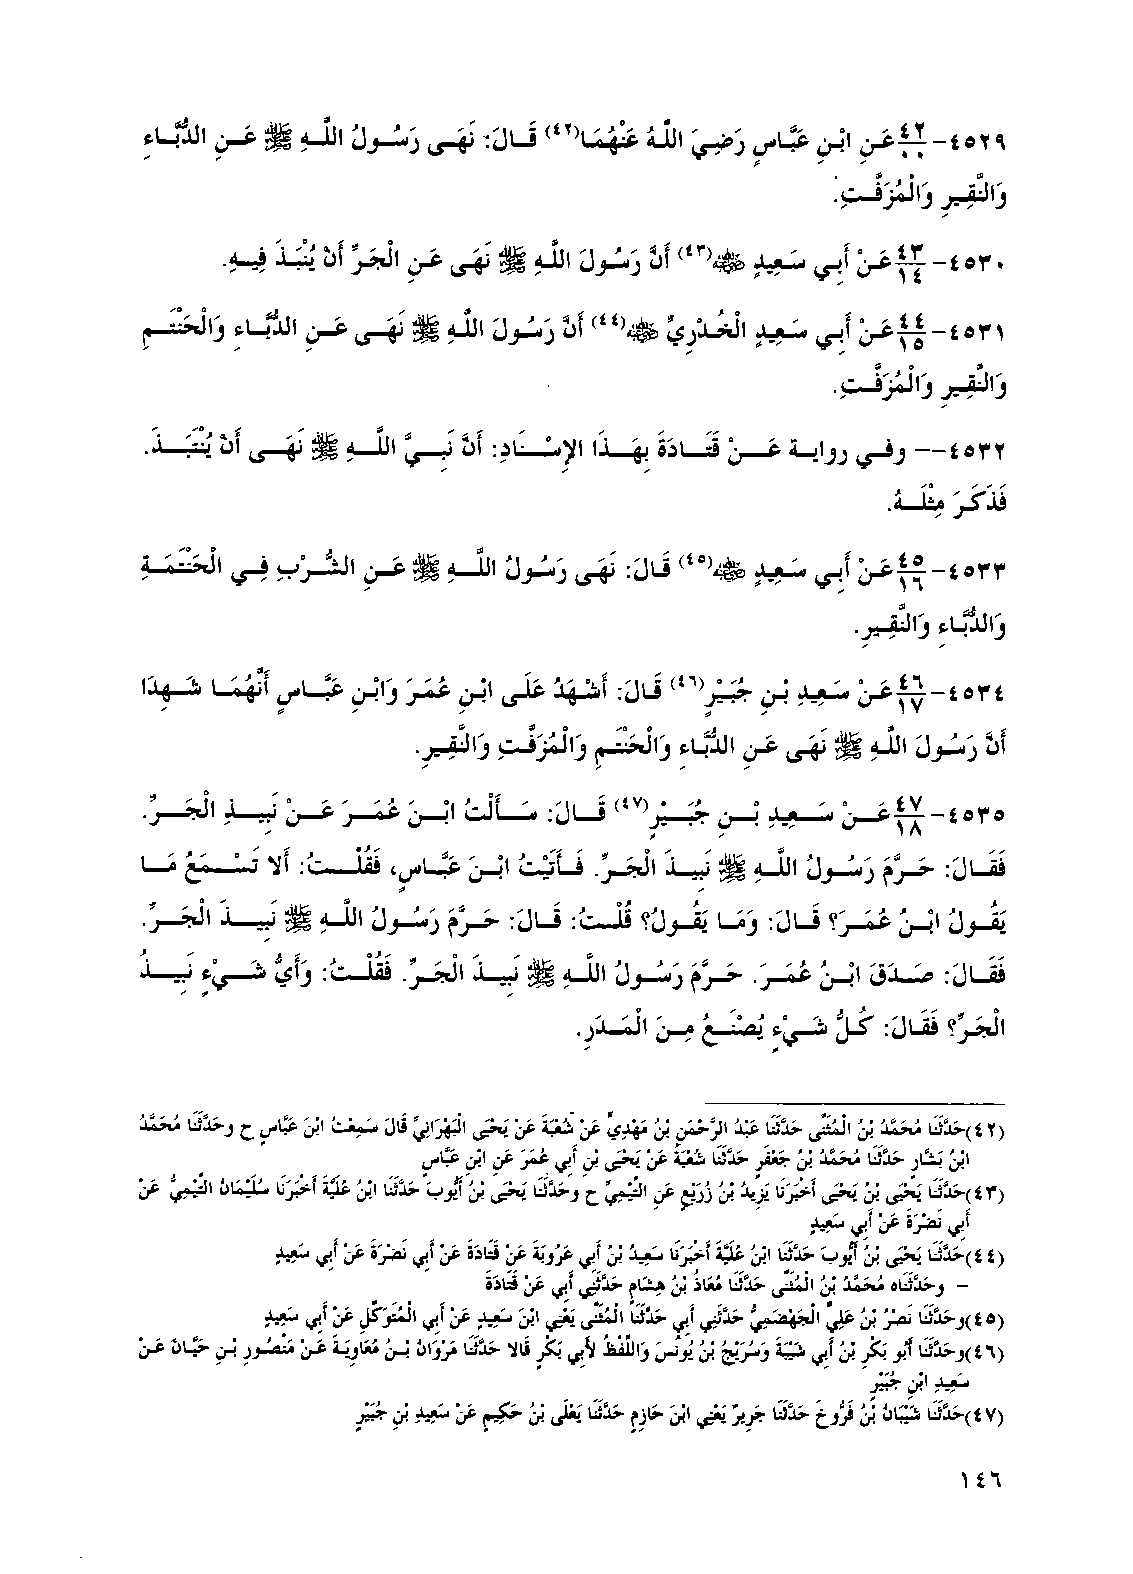 ٤٥٢٩- ٤٢/٠٠ عَنِ ابْنِ عَبَّاسٍ رَضِيَ اللَّهُ عَنْهُمَا(٤٢) قَالَ: نَهَى رَسُولُ اللَّهِ ﷺ عَنِ الدُّبَّاءِ
وَالنَّقِيرِ وَالْمُزَفَّتِ.
٤٥٣٠- ٤٣/١٤ عَنْ أَبِي سَعِيدٍ ﷺ(٤٣) أَنَّ رَسُولَ اللَّهِ ﷺ نَهَى عَنِ الْجَرِّ أَنْ يُنْبَذَ فِيهِ.
٤٥٣١- ٤٤/١٥ عَنْ أَبِي سَعِيدٍ الْخُدْرِيِّ ﷺ(٤٤) أَنَّ رَسُولَ اللَّهِ ﷺ نَهَى عَنِ الدُّبَّاءِ وَالْحَنْتَمِ
وَالنَّقِيرِ وَالْمُزَفَّتِ.
٤٥٣٢-- وفي رواية عَنْ قَتَادَةَ بِهَذَا الإِسْنَادِ: أَنَّ نَبِيَّ اللَّهِ ﷺ نَهَى أَنْ يُنْتَبَذَ.
فَذَكَرَ مِثْلَهُ.
٤٥٣٣- ٤٥/١٦ عَنْ أَبِي سَعِيدٍ ﷺ(٤٥) قَالَ: نَهَى رَسُولُ اللَّهِ ﷺ عَنِ الشُّرْبِ فِي الْحَنْتَمَةِ
وَالدُّبَّاءِ وَالنَّقِيرِ.
٤٥٣٤- ٤٦/١٧ عَنْ سَعِيدِ بْنِ جُبَيْرٍ(٤٦) قَالَ: أَشْهَدُ عَلَى ابْنِ عُمَرَ وَابْنِ عَبَّاسٍ أَنَّهُمَا شَهِدَا
أَنَّ رَسُولَ اللَّهِ ﷺ نَهَى عَنِ الدُّبَّاءِ وَالْحَنْتَمِ وَالْمُزَفَّتِ وَالنَّقِيرِ.
٤٥٣٥- ٤٧/١٨ عَنْ سَعِيدِ بْنِ جُبَيْرٍ(٤٧) قَالَ: سَأَلْتُ ابْنَ عُمَرَ عَنْ نَبِيذِ الْجَرِّ.
فَقَالَ: حَرَّمَ رَسُولُ اللَّهِ ﷺ نَبِيذَ الْجَرِّ. فَأَتَيْتُ ابْنَ عَبَّاسٍ، فَقُلْتُ: أَلا تَسْمَعُ مَا
يَقُولُ ابْنُ عُمَرَ؟ قَالَ: وَمَا يَقُولُ؟ قُلْتُ: قَالَ: حَرَّمَ رَسُولُ اللَّهِ ﷺ نَبِيذَ الْجَرِّ.
فَقَالَ: صَدَقَ ابْنُ عُمَرَ. حَرَّمَ رَسُولُ اللَّهِ ﷺ نَبِيذَ الْجَرِّ. فَقُلْتُ: وَأَيُّ شَيْءٍ نَبِيذُ
الْجَرِّ؟ فَقَالَ: كُلُّ شَيْءٍ يُصْنَعُ مِنَ الْمَدَرِ.
(٤٢)حَدَّثَنَا مُحَمَّدُ بْنُ الْمُثَنَّى حَدَّثَنَا عَبْدُ الرَّحْمَنِ بْنُ مَهْدِيٍّ عَنْ شُعْبَةَ عَنْ يَحْيَى الْبَهْرَانِيِّ قَالَ سَمِعْتُ ابْنَ عَبَّاسٍ ح وحَدَّثَنَا مُحَمَّدُ
ابْنُ بَشَّارٍ حَدَّثَنَا مُحَمَّدُ بْنُ جَعْفَرٍ حَدَّثَنَا شُعْبَةُ عَنْ يَحْيَى بْنِ أَبِي عُمَرَ عَنِ ابْنِ عَبَّاسٍ
(٤٣)حَدَّثَنَا يَحْيَى بْنُ يَحْيَى أَخْبَرَنَا يَزِيدُ بْنُ زُرَيْعٍ عَنِ التَّيْمِيِّ ح وحَدَّثَنَا يَحْيَى بْنُ أَيُّوبَ حَدَّثَنَا ابْنُ عُلَيَّةَ أَخْبَرَنَا سُلَيْمَانُ التَّيْمِيُّ عَنْ
أَبِي نَضْرَةَ عَنْ أَبِي سَعِيدٍ
(٤٤)حَدَّثَنَا يَحْيَى بْنُ أَيُّوبَ حَدَّثَنَا ابْنُ عُلَيَّةَ أَخْبَرَنَا سَعِيدُ بْنُ أَبِي عَرُوبَةَ عَنْ قَتَادَةَ عَنْ أَبِي نَضْرَةَ عَنْ أَبِي سَعِيدٍ
– وحَدَّثَنَاه مُحَمَّدُ بْنُ الْمُثَنَّى حَدَّثَنَا مُعَاذُ بْنُ هِشَامٍ حَدَّثَنِي أَبِي عَنْ قَتَادَةَ
(٤٥)وحَدَّثَنَا نَصْرُ بْنُ عَلِيٍّ الْجَهْضَمِيُّ حَدَّثَنِي أَبِي حَدَّثَنَا الْمُثَنَّى يَعْنِي ابْنَ سَعِيدٍ عَنْ أَبِي الْمُتَوَكِّلِ عَنْ أَبِي سَعِيدٍ
(٤٦)وحَدَّثَنَا أَبُو بَكْرِ بْنُ أَبِي شَيْبَةَ وَسُرَيْجُ بْنُ يُونُسَ وَاللَّفْظُ لأَبِي بَكْرٍ قَالا حَدَّثَنَا مَرْوَانُ بْنُ مُعَاوِيَةَ عَنْ مَنْصُورِ بْنِ حَيَّانَ عَنْ
سَعِيدِ ابْنِ جُبَيْرٍ
(٤٧)حَدَّثَنَا شَيْبَانُ بْنُ فَرُّوخَ حَدَّثَنَا جَرِيرٌ يَعْنِي ابْنَ حَازِمٍ حَدَّثَنَا يَعْلَى بْنُ حَكِيمٍ عَنْ سَعِيدِ بْنِ جُبَيْرٍ
١٤٦